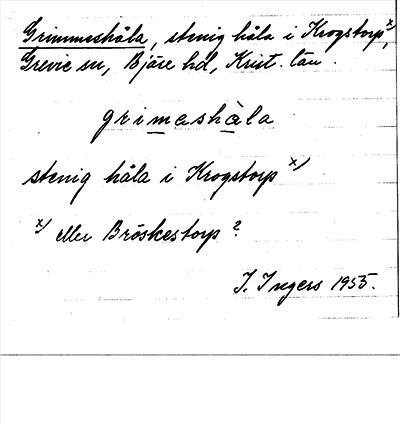 Grimmeshåla, stenig håla i Krogstorp x),
Grevie sn, Bjäre hd, Krist. län.
grimashàla
stenig håla i Krogstorp x)
x) eller Bröskestorp?
I. Ingers 1955.